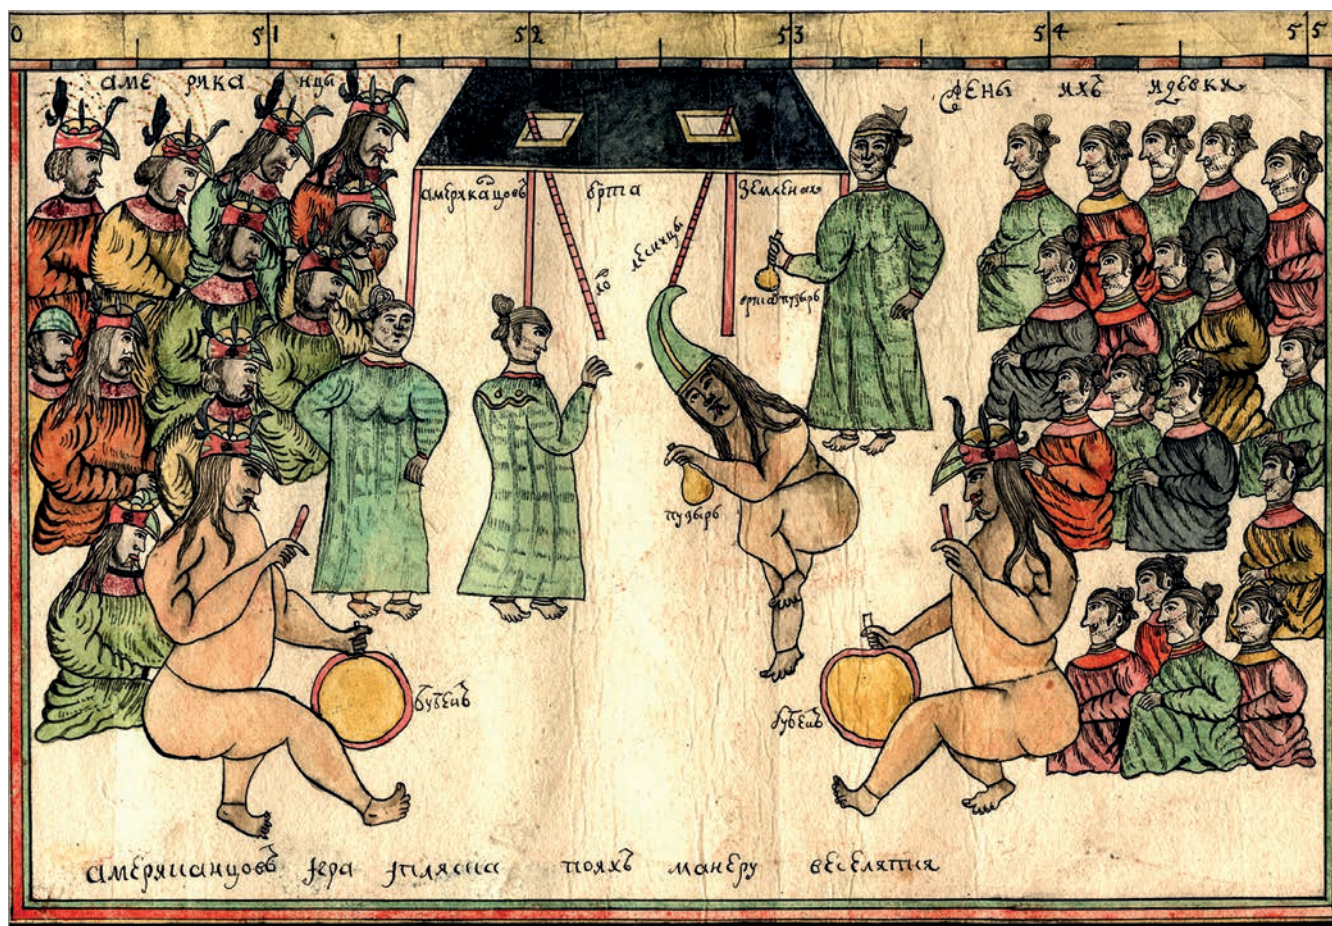 0 51 52 53 54 55
аме рика нцы
жены ихъ идевки
америкацовъ юрта земленая
лесницы
пузырь
пузырь
бубенъ
бубенъ
американцовъ игра ипляска поихъ манеру